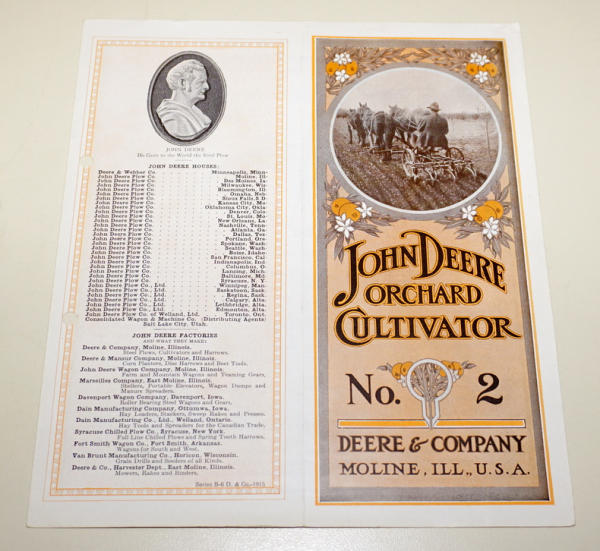 JOHN DEERE
He Gave to the World the Steel Plow
JOHN DEERE HOUSES:
Deere & Webber Co. Minneapolis, Minn.
John Deere Plow Co. Moline, Ill.
John Deere Plow Co. Des Moines, Ia.
John Deere Plow Co. Milwaukee, Wis.
John Deere Plow Co. Bloomington, Ill.
John Deere Plow Co. Omaha, Neb.
John Deere Plow Co. Sioux Falls, S. D.
John Deere Plow Co. Kansas City, Mo.
John Deere Plow Co. Oklahoma City, Okla.
John Deere Plow Co. Denver, Colo.
John Deere Plow Co. St. Louis, Mo.
John Deere Plow Co. New Orleans, La.
John Deere Plow Co. Nashville, Tenn.
John Deere Plow Co. Atlanta, Ga.
John Deere Plow Co. Dallas, Tex.
John Deere Plow Co. Portland, Ore.
John Deere Plow Co. Spokane, Wash.
John Deere Plow Co. Seattle, Wash.
John Deere Plow Co. Boise, Idaho
John Deere Plow Co. San Francisco, Cal.
John Deere Plow Co. Indianapolis, Ind.
John Deere Plow Co. Columbus, O.
John Deere Plow Co. Lansing, Mich.
John Deere Plow Co. Baltimore, Md.
John Deere Plow Co. Syracuse, N. Y.
John Deere Plow Co., Ltd. Winnipeg, Man.
John Deere Plow Co., Ltd. Saskatoon, Sask.
John Deere Plow Co., Ltd. Regina, Sask.
John Deere Plow Co., Ltd. Calgary, Alta.
John Deere Plow Co., Ltd. Lethbridge, Alta.
John Deere Plow Co., Ltd. Edmonton, Alta.
John Deere Plow Co. of Welland, Ltd. Toronto, Ont.
Consolidated Wagon & Machine Co. (Distributing Agents)
Salt Lake City, Utah.
JOHN DEERE FACTORIES
AND WHAT THEY MAKE:
Deere & Company, Moline, Illinois.
Steel Plows, Cultivators and Harrows.
Deere & Mansur Company, Moline, Illinois.
Corn Planters, Disc Harrows and Beet Tools.
John Deere Wagon Company, Moline, Illinois.
Farm and Mountain Wagons and Teaming Gears.
Marseilles Company, East Moline, Illinois.
Shellers, Portable Elevators, Wagon Dumps and
Manure Spreaders.
Davenport Wagon Company, Davenport, Iowa.
Roller Bearing Steel Wagons and Gears.
Dain Manufacturing Company, Ottumwa, Iowa.
Hay Loaders, Stackers, Sweep Rakes and Presses.
Dain Manufacturing Co., Ltd., Welland, Ontario.
Hay Tools and Spreaders for the Canadian Trade.
Syracuse Chilled Plow Co., Syracuse, New York.
Full Line Chilled Plows and Spring Tooth Harrows.
Fort Smith Wagon Co., Fort Smith, Arkansas.
Wagons for South and West.
Van Brunt Manufacturing Co., Horicon, Wisconsin.
Grain Drills and Seeders of all Kinds.
Deere & Co., Harvester Dept., East Moline, Illinois.
Mowers, Rakes and Binders.
Series B-6 D. & Co.-1915
JOHN DEERE
ORCHARD
CULTIVATOR
No. 2
DEERE & COMPANY
MOLINE, ILL., U.S.A.